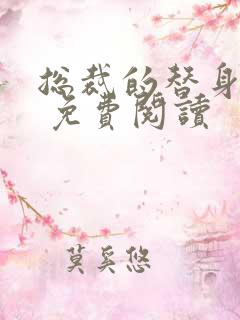 总裁的替身
免費閱讀
莫奚悠